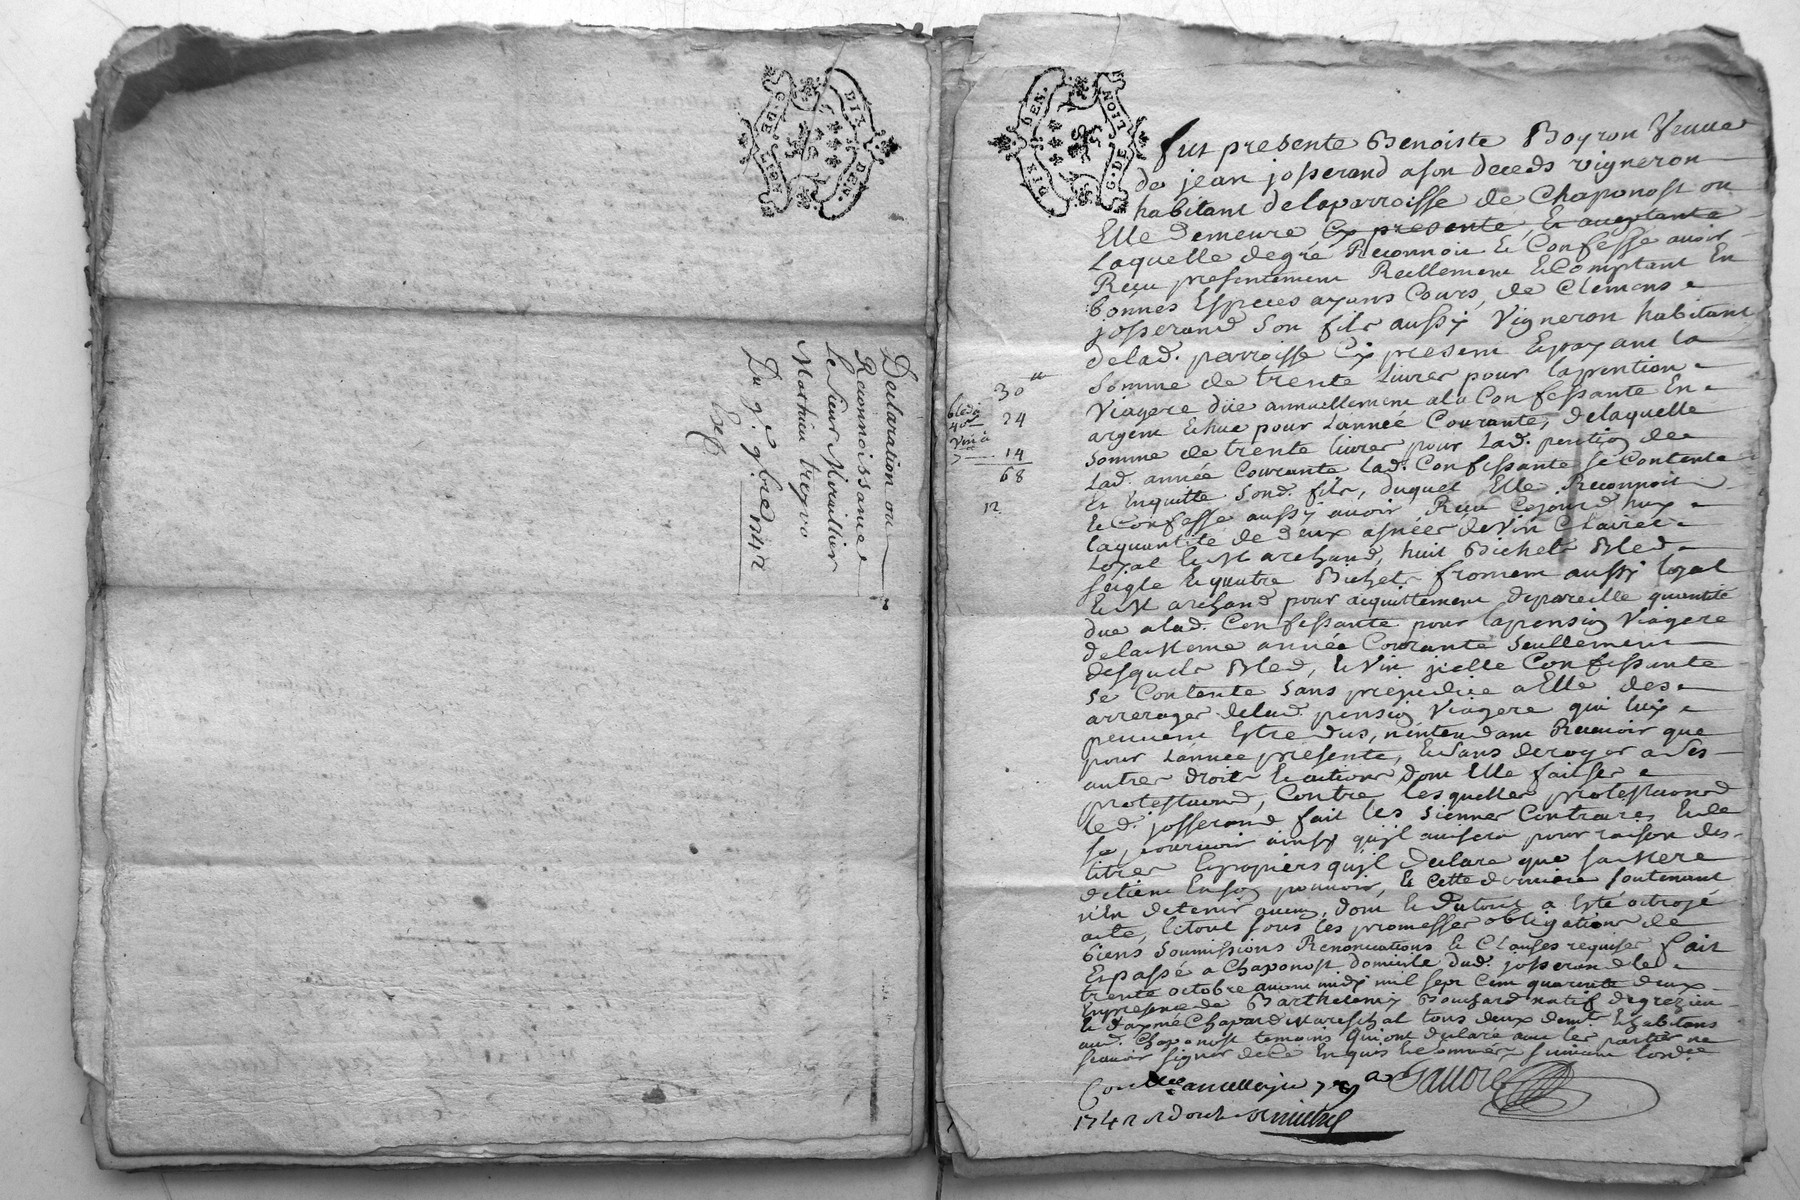 G. DE LION
DIX DEN.
Declaration ou
Reconnoissance
Le sieur Miraillier
Mathieu treyvo
Du 9.e 9bre 1742
DIX DEN.
G. DE LION
fut presente Benoiste Boyron Veuve
de jean josserand a son deceds vigneron
habitant de la parroisse de Chaponost ou
Elle demeure Cy presente, & aceptante
Laquelle de gré Reconnoit & Confesse avoir
Reçu presentement Reellement & Comptant En
bonnes Especes ayans Cours, de Clemens
josserand son fils aussy Vigneron habitant
de lad. parroisse Cy present & payant la
somme de trente Livres pour la pention
Viagere düe annuellement a la Confessante En
argent Echue pour L'année Courante, de laquelle
somme de trente livres pour Lad. pention de
Lad. année Courante Lad. Confessante se Contente
Et En quitte sond. fils, duquel Elle Reconnoit
& Confesse aussy avoir Reçu Cejourd'huy
la quantité de deux asnées de Vin Clairet
Loyal & Marchand, huit Bichets Bled
seigle & quatre Bichets froment aussy loyal
& Marchand pour acquittement de pareille quantité
due a lad. Confessante pour la pension Viagere
de la Meme année Courante Seullement
desquels Bled, & Vin jcelle Confessante
se Contente sans prejudice a Elle des
arrerages de lad. pension Viagere qui luy
peuvent Estre dus, n'entendant Recevoir que
pour L'année presente, & sans deroger a ses
autres droits & actions dont Elle fait ses
protestations, Contre lesquelles protestations
led. josserand fait les siennes Contraires, & de
se pourvoir ainsy qu'jl avisera pour raison des
titres & papiers qu'jl declare que sa Mere
detient En son pouvoir, & cette derniere soutenant
n'En detenir aucun, dont & du tout a Esté octroyé
acte, le tout sous les promesses obligations de
biens soumissions Renonciations & Clauses requises fait
& passé a Chaponost domicile dud. josserand le
trente octobre avant midy mil sept Cent quarante deux
En presence de Barthelemy Bouchard natif de grezieu
& d'aymé Chapard Mareschal tous deux demt. & habitans
aud. Chaponost temoins Qui ont declaré avec les parties ne
scavoir signer de Ce Enquis & sommés suivant l'ord.ce
1742
30 tt
bled a
24
Vin a
14
68
12